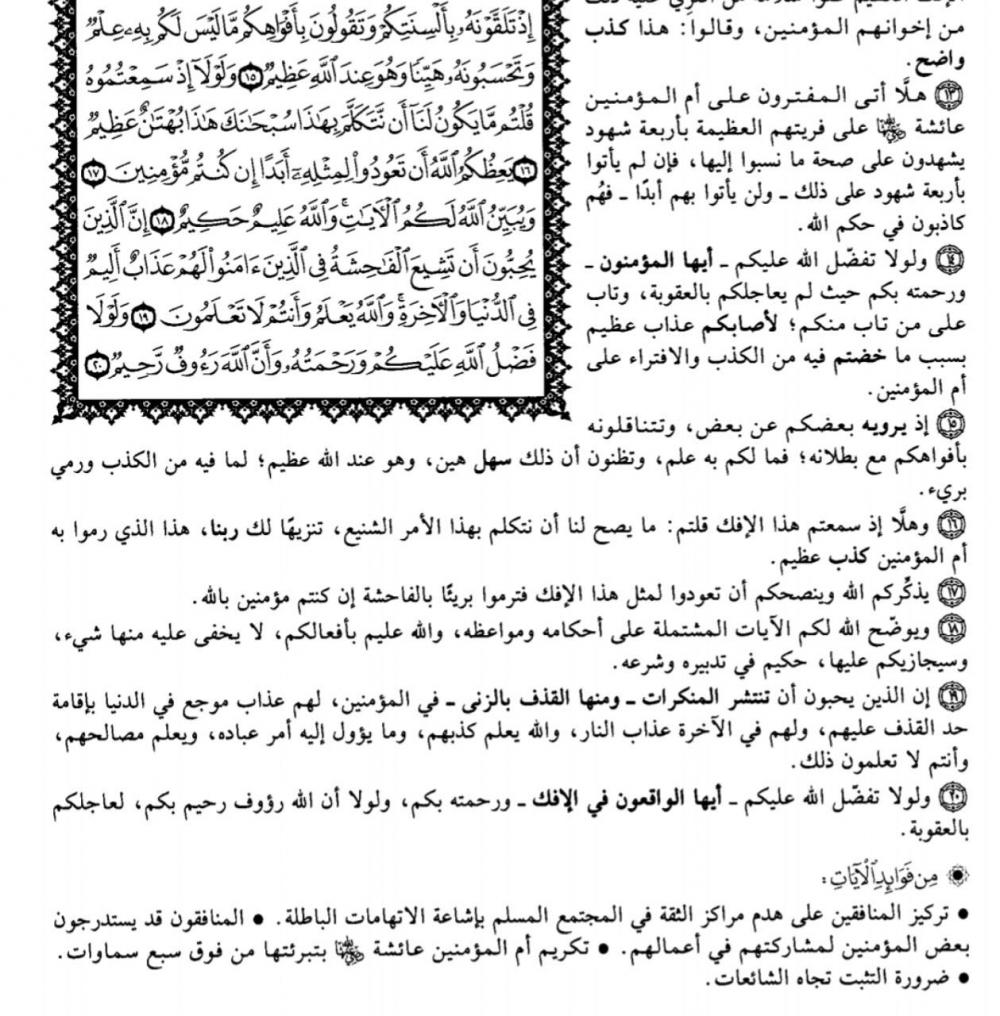 إِذْ تَلَقَّوْنَهُۥ بِأَلْسِنَتِكُمْ وَتَقُولُونَ بِأَفْوَاهِكُم مَّا لَيْسَ لَكُم بِهِۦ عِلْمٌ
وَتَحْسَبُونَهُۥ هَيِّنًا وَهُوَ عِندَ ٱللَّهِ عَظِيمٌ ١٥ وَلَوْلَآ إِذْ سَمِعْتُمُوهُ
قُلْتُم مَّا يَكُونُ لَنَآ أَن نَّتَكَلَّمَ بِهَٰذَا سُبْحَٰنَكَ هَٰذَا بُهْتَٰنٌ عَظِيمٌ
١٦ يَعِظُكُمُ ٱللَّهُ أَن تَعُودُوا۟ لِمِثْلِهِۦٓ أَبَدًا إِن كُنتُم مُّؤْمِنِينَ ١٧
وَيُبَيِّنُ ٱللَّهُ لَكُمُ ٱلْءَايَٰتِ ۚ وَٱللَّهُ عَلِيمٌ حَكِيمٌ ١٨ إِنَّ ٱلَّذِينَ
يُحِبُّونَ أَن تَشِيعَ ٱلْفَٰحِشَةُ فِى ٱلَّذِينَ ءَامَنُوا۟ لَهُمْ عَذَابٌ أَلِيمٌ
فِى ٱلدُّنْيَا وَٱلْءَاخِرَةِ ۚ وَٱللَّهُ يَعْلَمُ وَأَنتُمْ لَا تَعْلَمُونَ ١٩ وَلَوْلَا
فَضْلُ ٱللَّهِ عَلَيْكُمْ وَرَحْمَتُهُۥ وَأَنَّ ٱللَّهَ رَءُوفٌ رَّحِيمٌ ٢٠
من إخوانهم المؤمنين، وقالوا: هذا كذب
واضح.
١٣ هلَّا أتى المفترون على أم المؤمنين
عائشة رضي الله عنها على فريتهم العظيمة بأربعة شهود
يشهدون على صحة ما نسبوا إليها، فإن لم يأتوا
بأربعة شهود على ذلك ـ ولن يأتوا بهم أبدًا ـ فهُم
كاذبون في حكم الله.
١٤ ولولا تفضّل الله عليكم ـ أيها المؤمنون ـ
ورحمته بكم حيث لم يعاجلكم بالعقوبة، وتاب
على من تاب منكم؛ لأصابكم عذاب عظيم
بسبب ما خضتم فيه من الكذب والافتراء على
أم المؤمنين.
١٥ إذ يرويه بعضكم عن بعض، وتتناقلونه
بأفواهكم مع بطلانه؛ فما لكم به علم، وتظنون أن ذلك سهل هين، وهو عند الله عظيم؛ لما فيه من الكذب ورمي
بريء.
١٦ وهلَّا إذ سمعتم هذا الإفك قلتم: ما يصح لنا أن نتكلم بهذا الأمر الشنيع، تنزيهًا لك ربنا، هذا الذي رموا به
أم المؤمنين كذب عظيم.
١٧ يذكِّركم الله وينصحكم أن تعودوا لمثل هذا الإفك فترموا بريئًا بالفاحشة إن كنتم مؤمنين بالله.
١٨ ويوضّح الله لكم الآيات المشتملة على أحكامه ومواعظه، والله عليم بأفعالكم، لا يخفى عليه منها شيء،
وسيجازيكم عليها، حكيم في تدبيره وشرعه.
١٩ إن الذين يحبون أن تنتشر المنكرات ـ ومنها القذف بالزنى ـ في المؤمنين، لهم عذاب موجع في الدنيا بإقامة
حد القذف عليهم، ولهم في الآخرة عذاب النار، والله يعلم كذبهم، وما يؤول إليه أمر عباده، ويعلم مصالحهم،
وأنتم لا تعلمون ذلك.
٢٠ ولولا تفضّل الله عليكم ـ أيها الواقعون في الإفك ـ ورحمته بكم، ولولا أن الله رؤوف رحيم بكم، لعاجلكم
بالعقوبة.
مِن فَوَائِدِ ٱلْآيَاتِ:
• تركيز المنافقين على هدم مراكز الثقة في المجتمع المسلم بإشاعة الاتهامات الباطلة. • المنافقون قد يستدرجون
بعض المؤمنين لمشاركتهم في أعمالهم. • تكريم أم المؤمنين عائشة رضي الله عنها بتبرئتها من فوق سبع سماوات.
• ضرورة التثبت تجاه الشائعات.